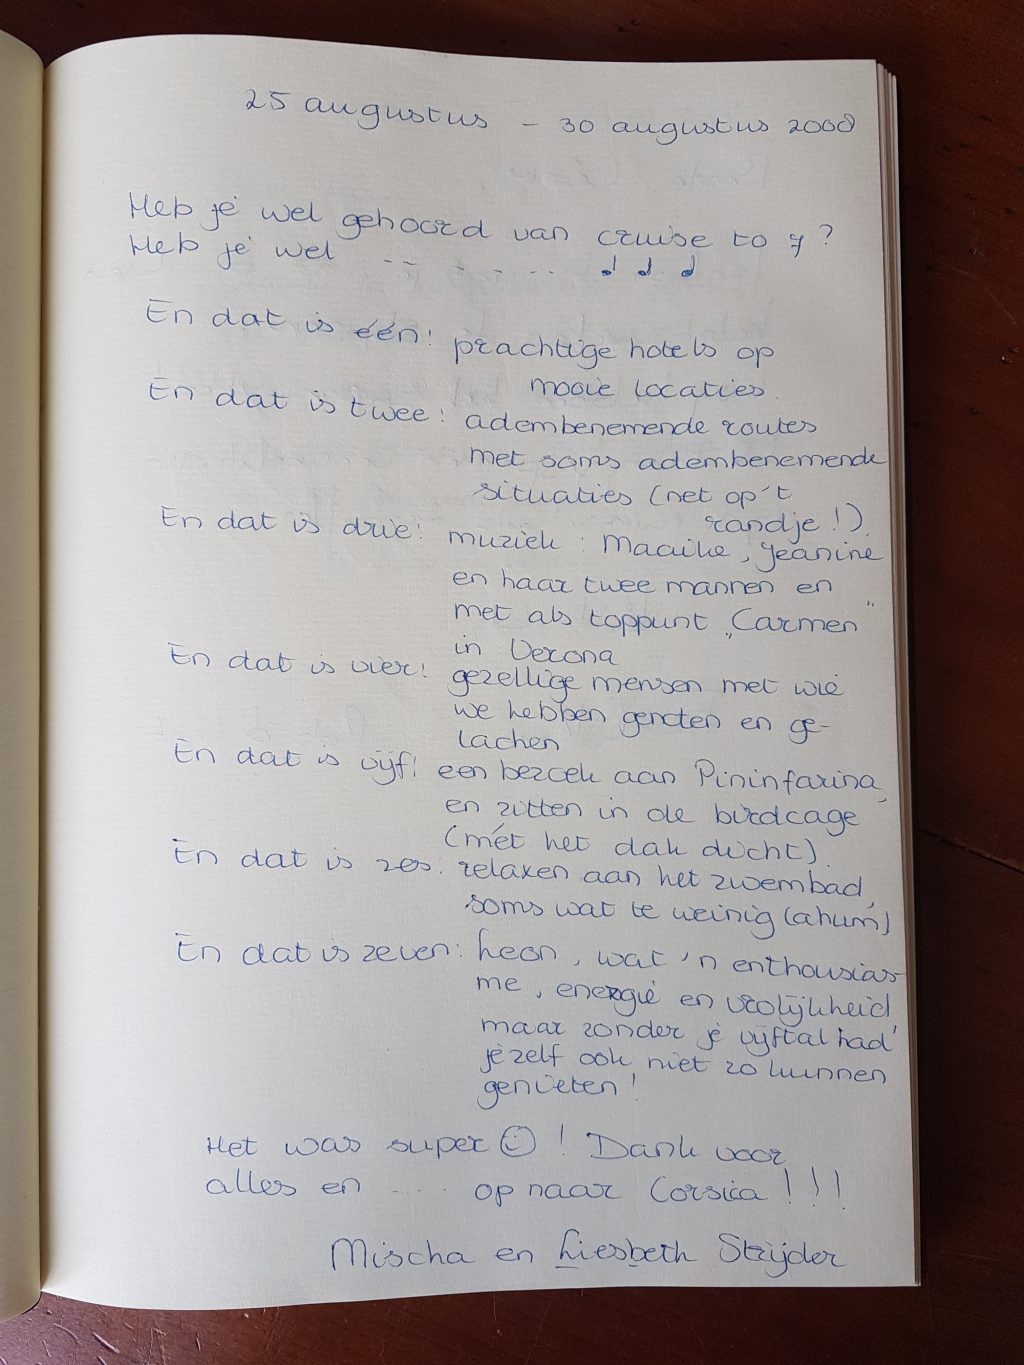 25 augustus - 30 augustus 2008
Heb je wel gehoord van cruise to 7?
Heb je wel -- - - -- ♩ ♩ ♩
En dat is één! prachtige hotels op
mooie locaties.
En dat is twee: adembenemende routes
met soms adembenemende
situaties (net op 't
randje!).
En dat is drie! muziek: Maaike, Jeanine
en haar twee mannen en
met als toppunt „Carmen"
in Verona
En dat is vier! gezellige mensen met wie
we hebben genoten en ge-
lachen
En dat is vijf! een bezoek aan Pininfarina,
en zitten in de birdcage
(mét het dak dicht).
En dat is zes: relaxen aan het zwembad,
soms wat te weinig (ahum)
En dat is zeven: Leon, wat 'n enthousias-
me, energie en vrolijkheid
maar zonder je vijftal had
jezelf ook niet zo kunnen
genieten!
Het was super ☺! Dank voor
alles en .... op naar Corsica!!!
Mischa en Liesbeth Strijder